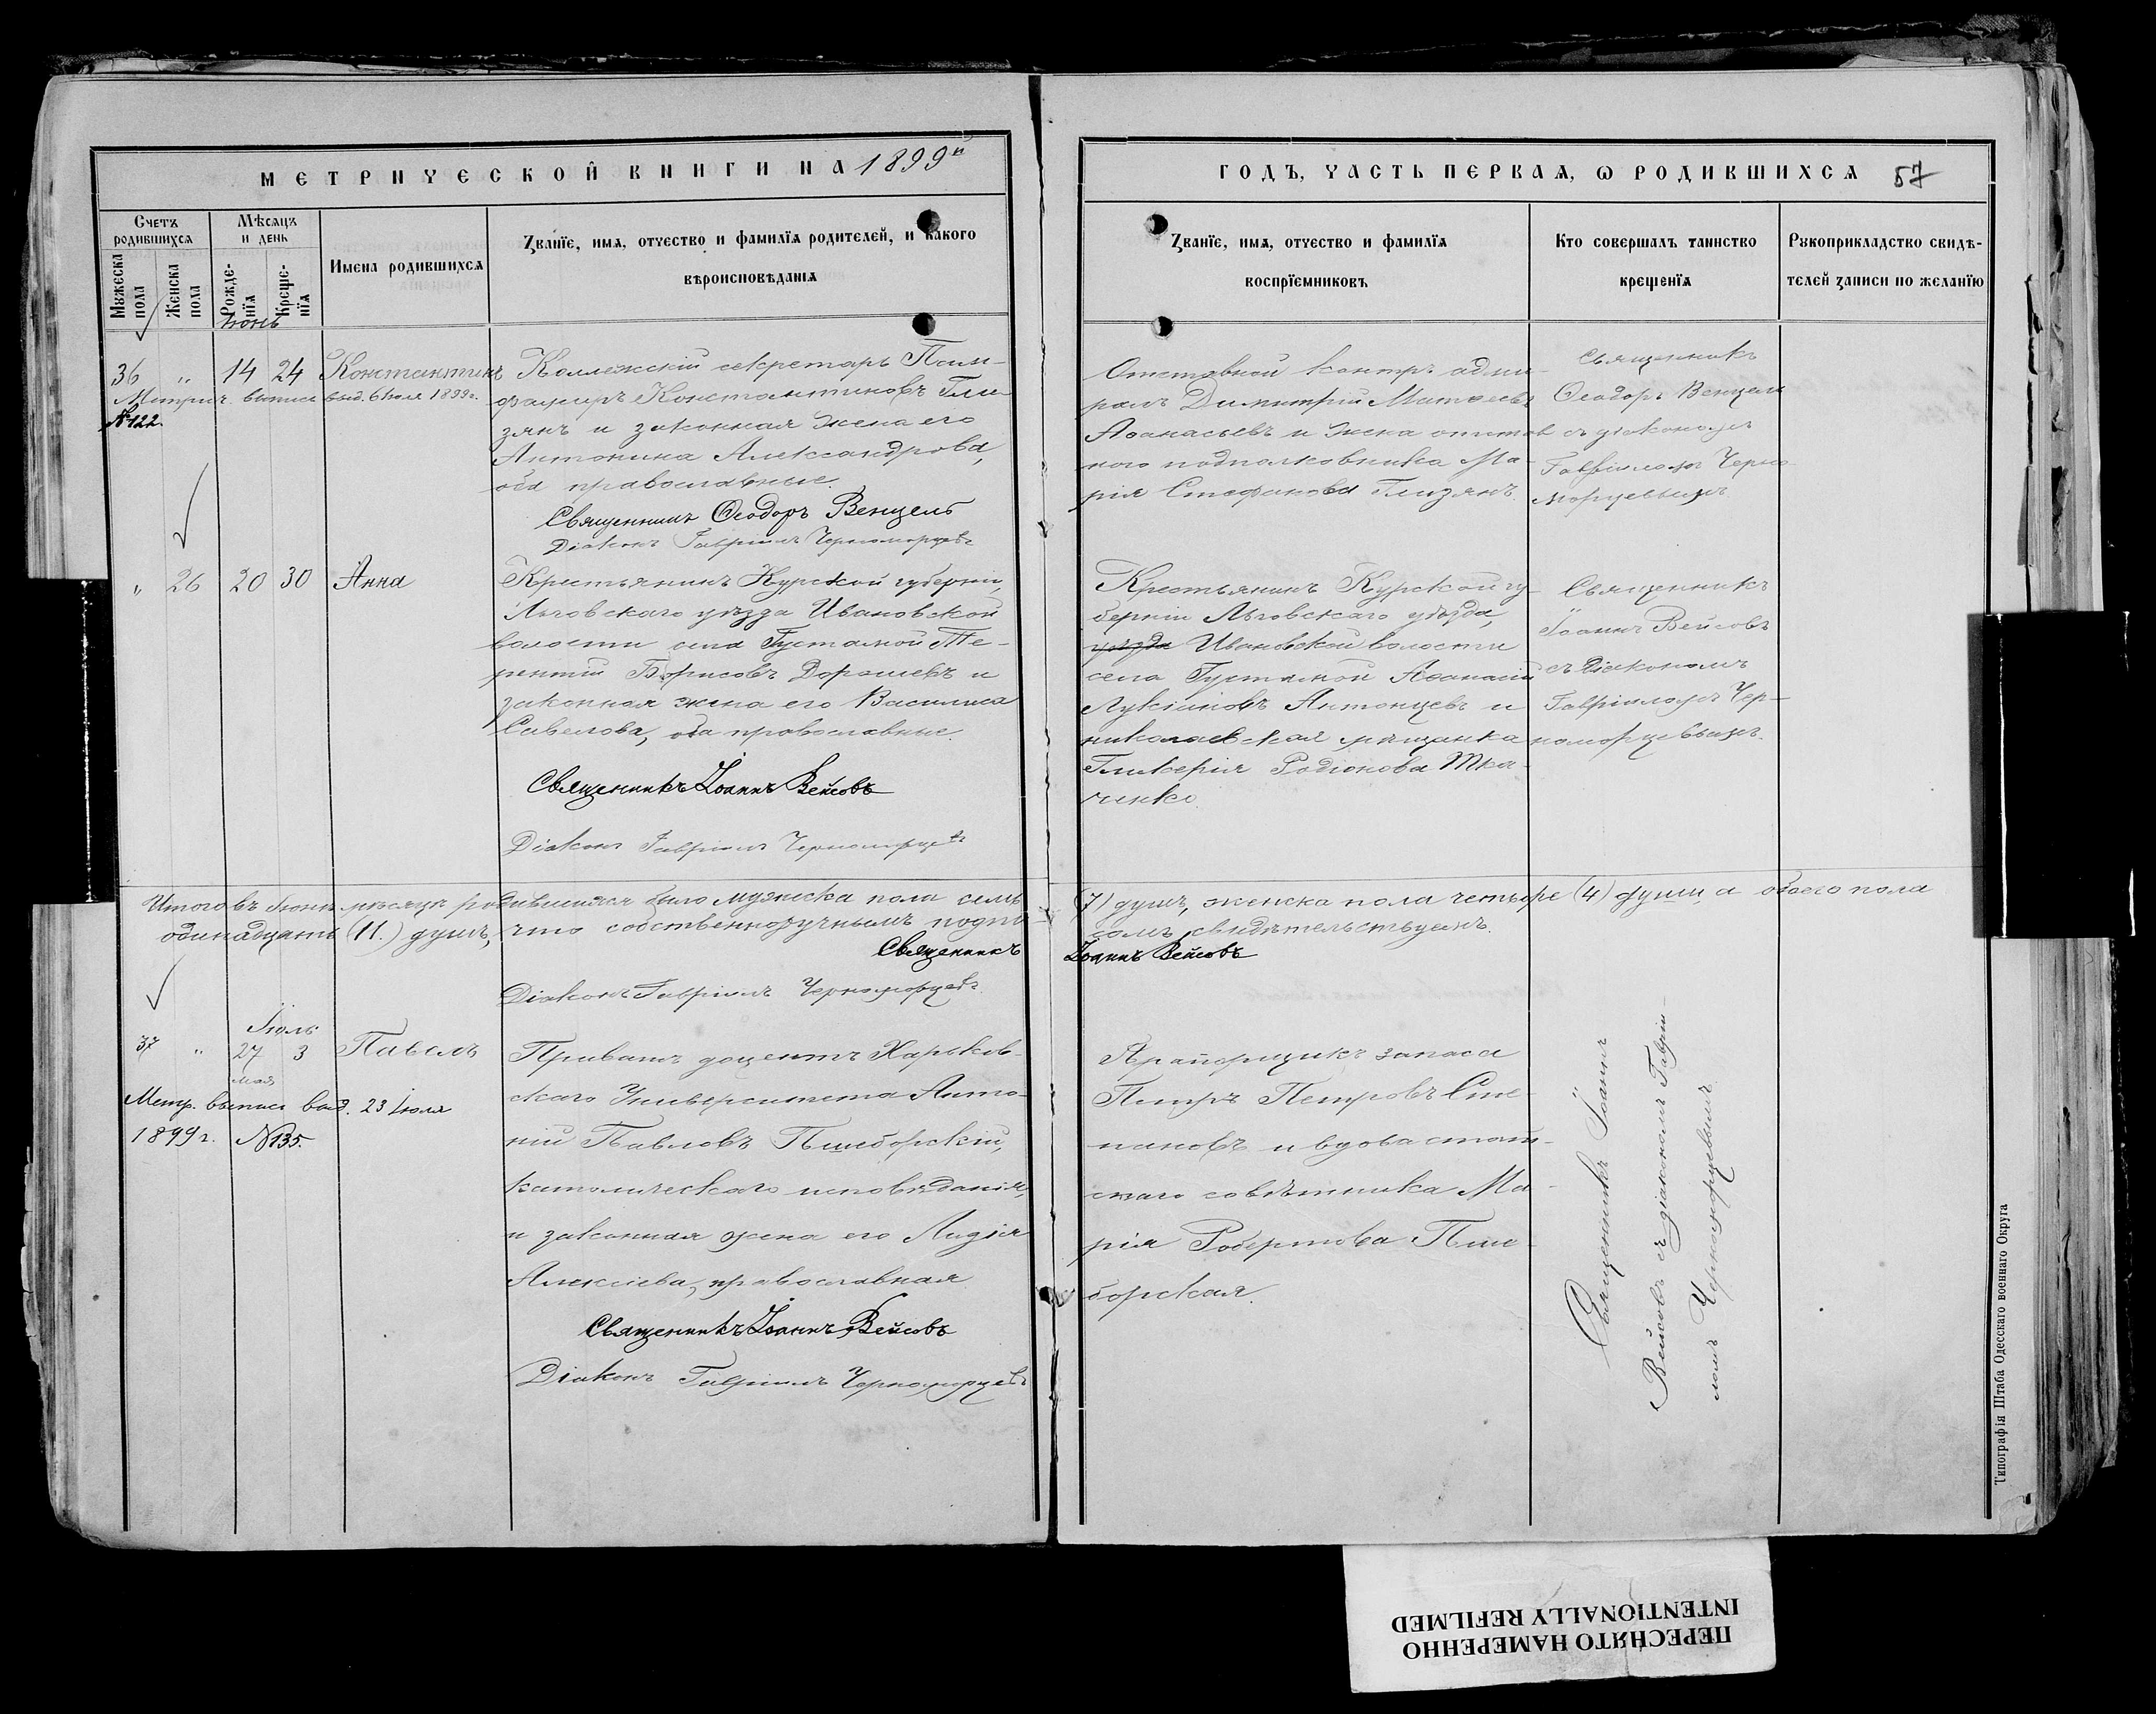 МЕТРИЧЕСКОЙ КНИГИ НА 1899й
Счетъ родившихся
Мѣсяцъ и день
Мужеска пола
Женска пола
Рожде-нія
Креще-нія
Имена родившихся
Званіе, имя, отчество и фамилія родителей, и какого
вѣроисповѣданія
Іюнь
36 " 14 24 Константинъ
Метрич. выпись выд. 6 Іюля 1899 г.
№ 122.
Коллежскій секретарь
Константиновъ Гли-
зянъ и законная жена его
Антонина Александрова,
оба православные.
Священникъ Ѳеодоръ Венцель
Діаконъ Гавріилъ Черноморцевъ
" 26 20 30 Анна
Крестьянинъ Курской губерніи,
Льговскаго уѣзда Ивановской
волости села Густомой Те-
рентій Борисовъ Дорошевъ и
законная жена его Василиса
Савелова, оба православные.
Священникъ Іоаннъ Вейсовъ
Діаконъ Гавріилъ Черноморцевъ
Итого въ Іюнѣ мѣсяцѣ родившихся было мужеска пола семь
одинадцать (11.) душъ, что собственноручнымъ подпи-
Священникъ
Діаконъ Гавріилъ Черноморцевъ
Іюль
37 " 27 3 Павелъ
мая
Метр. выпись выд. 23 Іюля
1899 г. № 135.
Приватъ доцентъ Харьков-
скаго Университета Анто-
ній Павловъ Пшеборскій,
католическаго исповѣданія,
и законная жена его Лидія
Алексіева, православная
Священникъ Іоаннъ Вейсовъ
Діаконъ Гавріилъ Черноморцевъ
ГОДЪ, ЧАСТЬ ПЕРВАЯ, Ѡ РОДИВШИХСЯ 57
Званіе, имя, отчество и фамилія
воспріемниковъ
Кто совершалъ таинство
крещенія
Рукоприкладство свидѣ-
телей записи по желанію
Отставной контръ адми-
ралъ Димитрій Матвеевъ
Аѳанасьевъ и жена отстав
ного подполковника Ма-
рія Стефанова Глизянъ.
Священникъ
Ѳеодоръ Венцель
съ діакономъ
Гавріиломъ Черно-
морцевымъ
Крестьянинъ Курской гу-
берніи Льговскаго уѣзда,
уѣзда Ивановской волости
села Густомой Аѳанасій
Лукіановъ Антонцевъ и
николаевская мѣщанка
Гликерія Родіонова Тка-
ченко.
Священникъ
Іоаннъ Вейсовъ
съ Діакономъ
Гавріиломъ Чер-
номорцевымъ.
(7) душъ, женска пола четыре (4) души, а обоего пола
сомъ свидѣтельствуемъ.
Іоаннъ Вейсовъ
запаса
Петръ Петровъ Сте-
пановъ и вдова стат-
скаго совѣтника Ма-
рія Робертова Пше-
борская.
Священникъ Іоаннъ
Вейсовъ съ діакономъ Гаврі-
ломъ Черноморцевымъ
Типографія Штаба Одесскаго военнаго Округа
ПЕРЕСНЯТО НАМЕРЕННО
INTENTIONALLY REFILMED